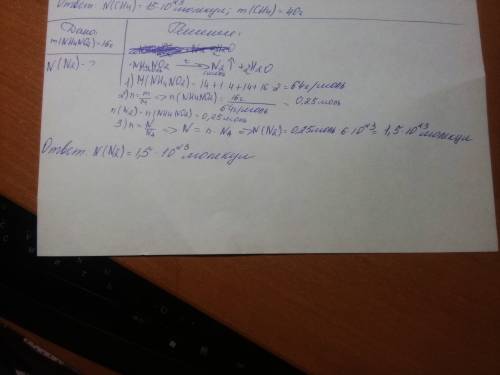 Ответ: N(CH4) = 15·10²³ молекул; m(CH4) = 40г
Дано:
m(NH4NO2)=16г
N(N2)-?
Решение:
NH4NO2 → N2↑ + 2H2O
1) M(NH4NO2) = 14+1·4+14+16·2 = 64г/моль
2) n = m/M => n(NH4NO2) = 16г / 64г/моль = 0,25моль
n(N2) = n(NH4NO2) = 0,25моль
3) n = N/NA => N = n·NA => N(N2) = 0,25моль·6·10²³ = 1,5·10²³ молекул
Ответ: N(N2) = 1,5·10²³ молекул